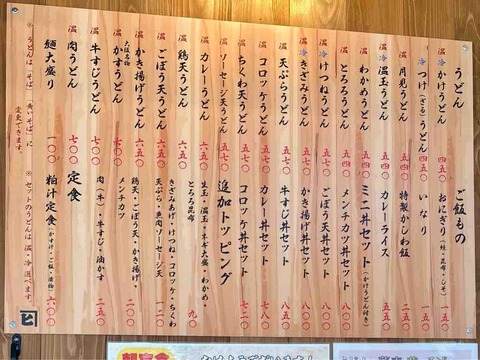 うどん
温 冷 かけうどん
温 冷 つけ(ざる)うどん 四五〇
温 月見うどん 四五〇
温 冷 温玉うどん
温 わかめうどん 五四〇
温 とろろうどん 五四〇
温 冷 けつねうどん 五四〇
温 冷 きざみうどん 五四〇
温 天ぷらうどん 五七〇
温 コロッケうどん 五七〇
温 ちくわ天うどん 五七〇
温 ソーセージ天うどん 五七〇
温 カレーうどん 六五〇
温 鶏天うどん 六五〇
温 ごぼう天うどん 六五〇
温 かき揚げうどん 六五〇
温 大阪名物 かすうどん
温 牛すじうどん 七〇〇
温 肉うどん 七〇〇
麺大盛り 一〇〇
※うどんは「そば」「黄いそば」に変更できます。
※セットのうどんは温・冷選べます。
ご飯もの
おにぎり(梅・昆布・しそ) 一五〇
いなり 一五〇
特製かしわ飯 二五〇
カレーライス
ミニ丼セット(かけうどん付き)
メンチカツ丼セット 八〇〇
コロッケ丼セット 七〇〇
ごぼう天丼セット 八〇〇
かき揚げ丼セット 八〇〇
牛すじ丼セット 八五〇
カレー丼セット
コロッケカレー丼セット 七二〇
追加トッピング
生玉・温玉・ネギ大盛・わかめ・とろろ昆布 九〇
きざみあげ・けつね・コロッケ・ちくわ天ぷら・魚肉ソーセージ天 一二〇
鶏天・ごぼう天・かき揚げ・メンチカツ
肉(牛)・牛すじ・油かす 二五〇
定食
粕汁定食(かす汁・ご飯・漬物) 六〇〇